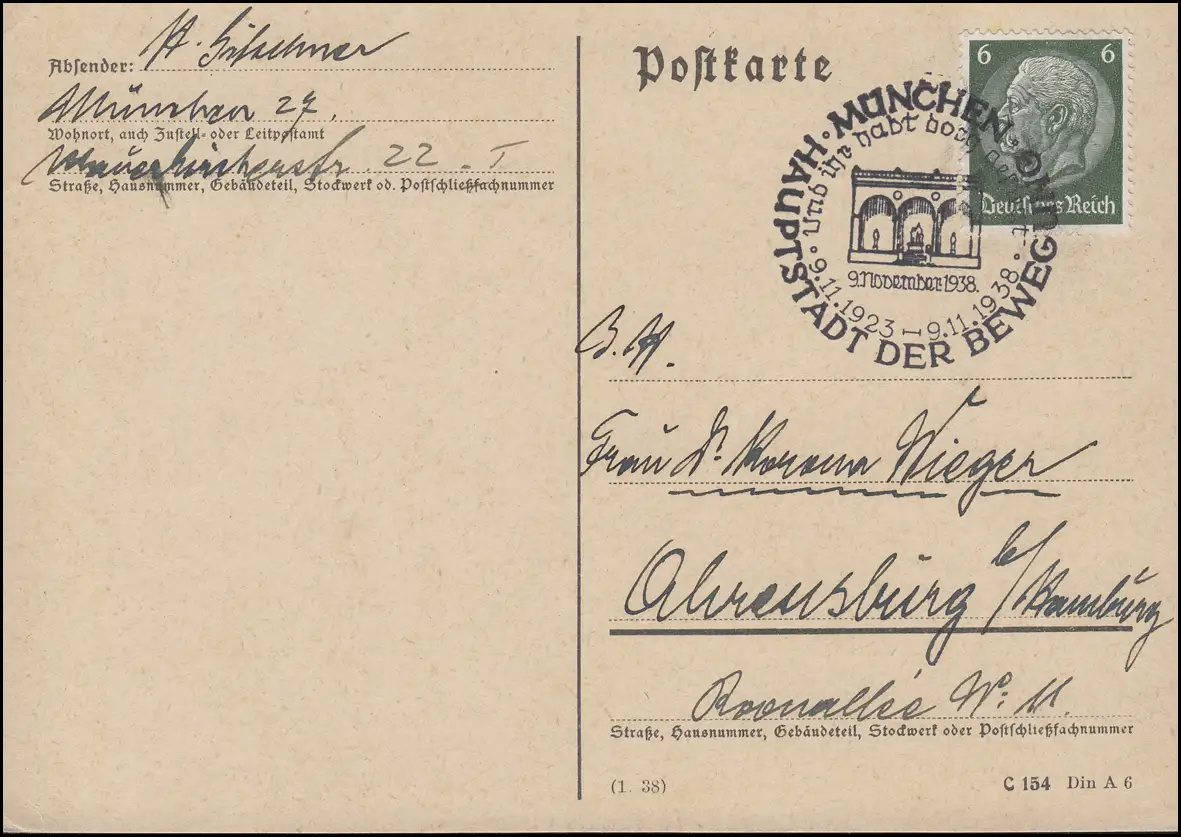 Absender: H.
München 27.
Wohnort, auch Zustell- oder Leitpostamt
Mauerkircherstr. 22 - I
Straße, Hausnummer, Gebäudeteil, Stockwerk od. Postschließfachnummer
Postkarte
6 6
Deutsches Reich
MÜNCHEN · HAUPTSTADT DER BEWEGUNG
Und ihr habt doch gesiegt
9. November 1938.
9.11.1923 – 9.11.1938
B. H.
Frau Dr. Korona Wieger
Ahrensburg b/Hamburg
Roonallee No: 11.
Straße, Hausnummer, Gebäudeteil, Stockwerk oder Postschließfachnummer
(1. 38)
C 154 Din A 6